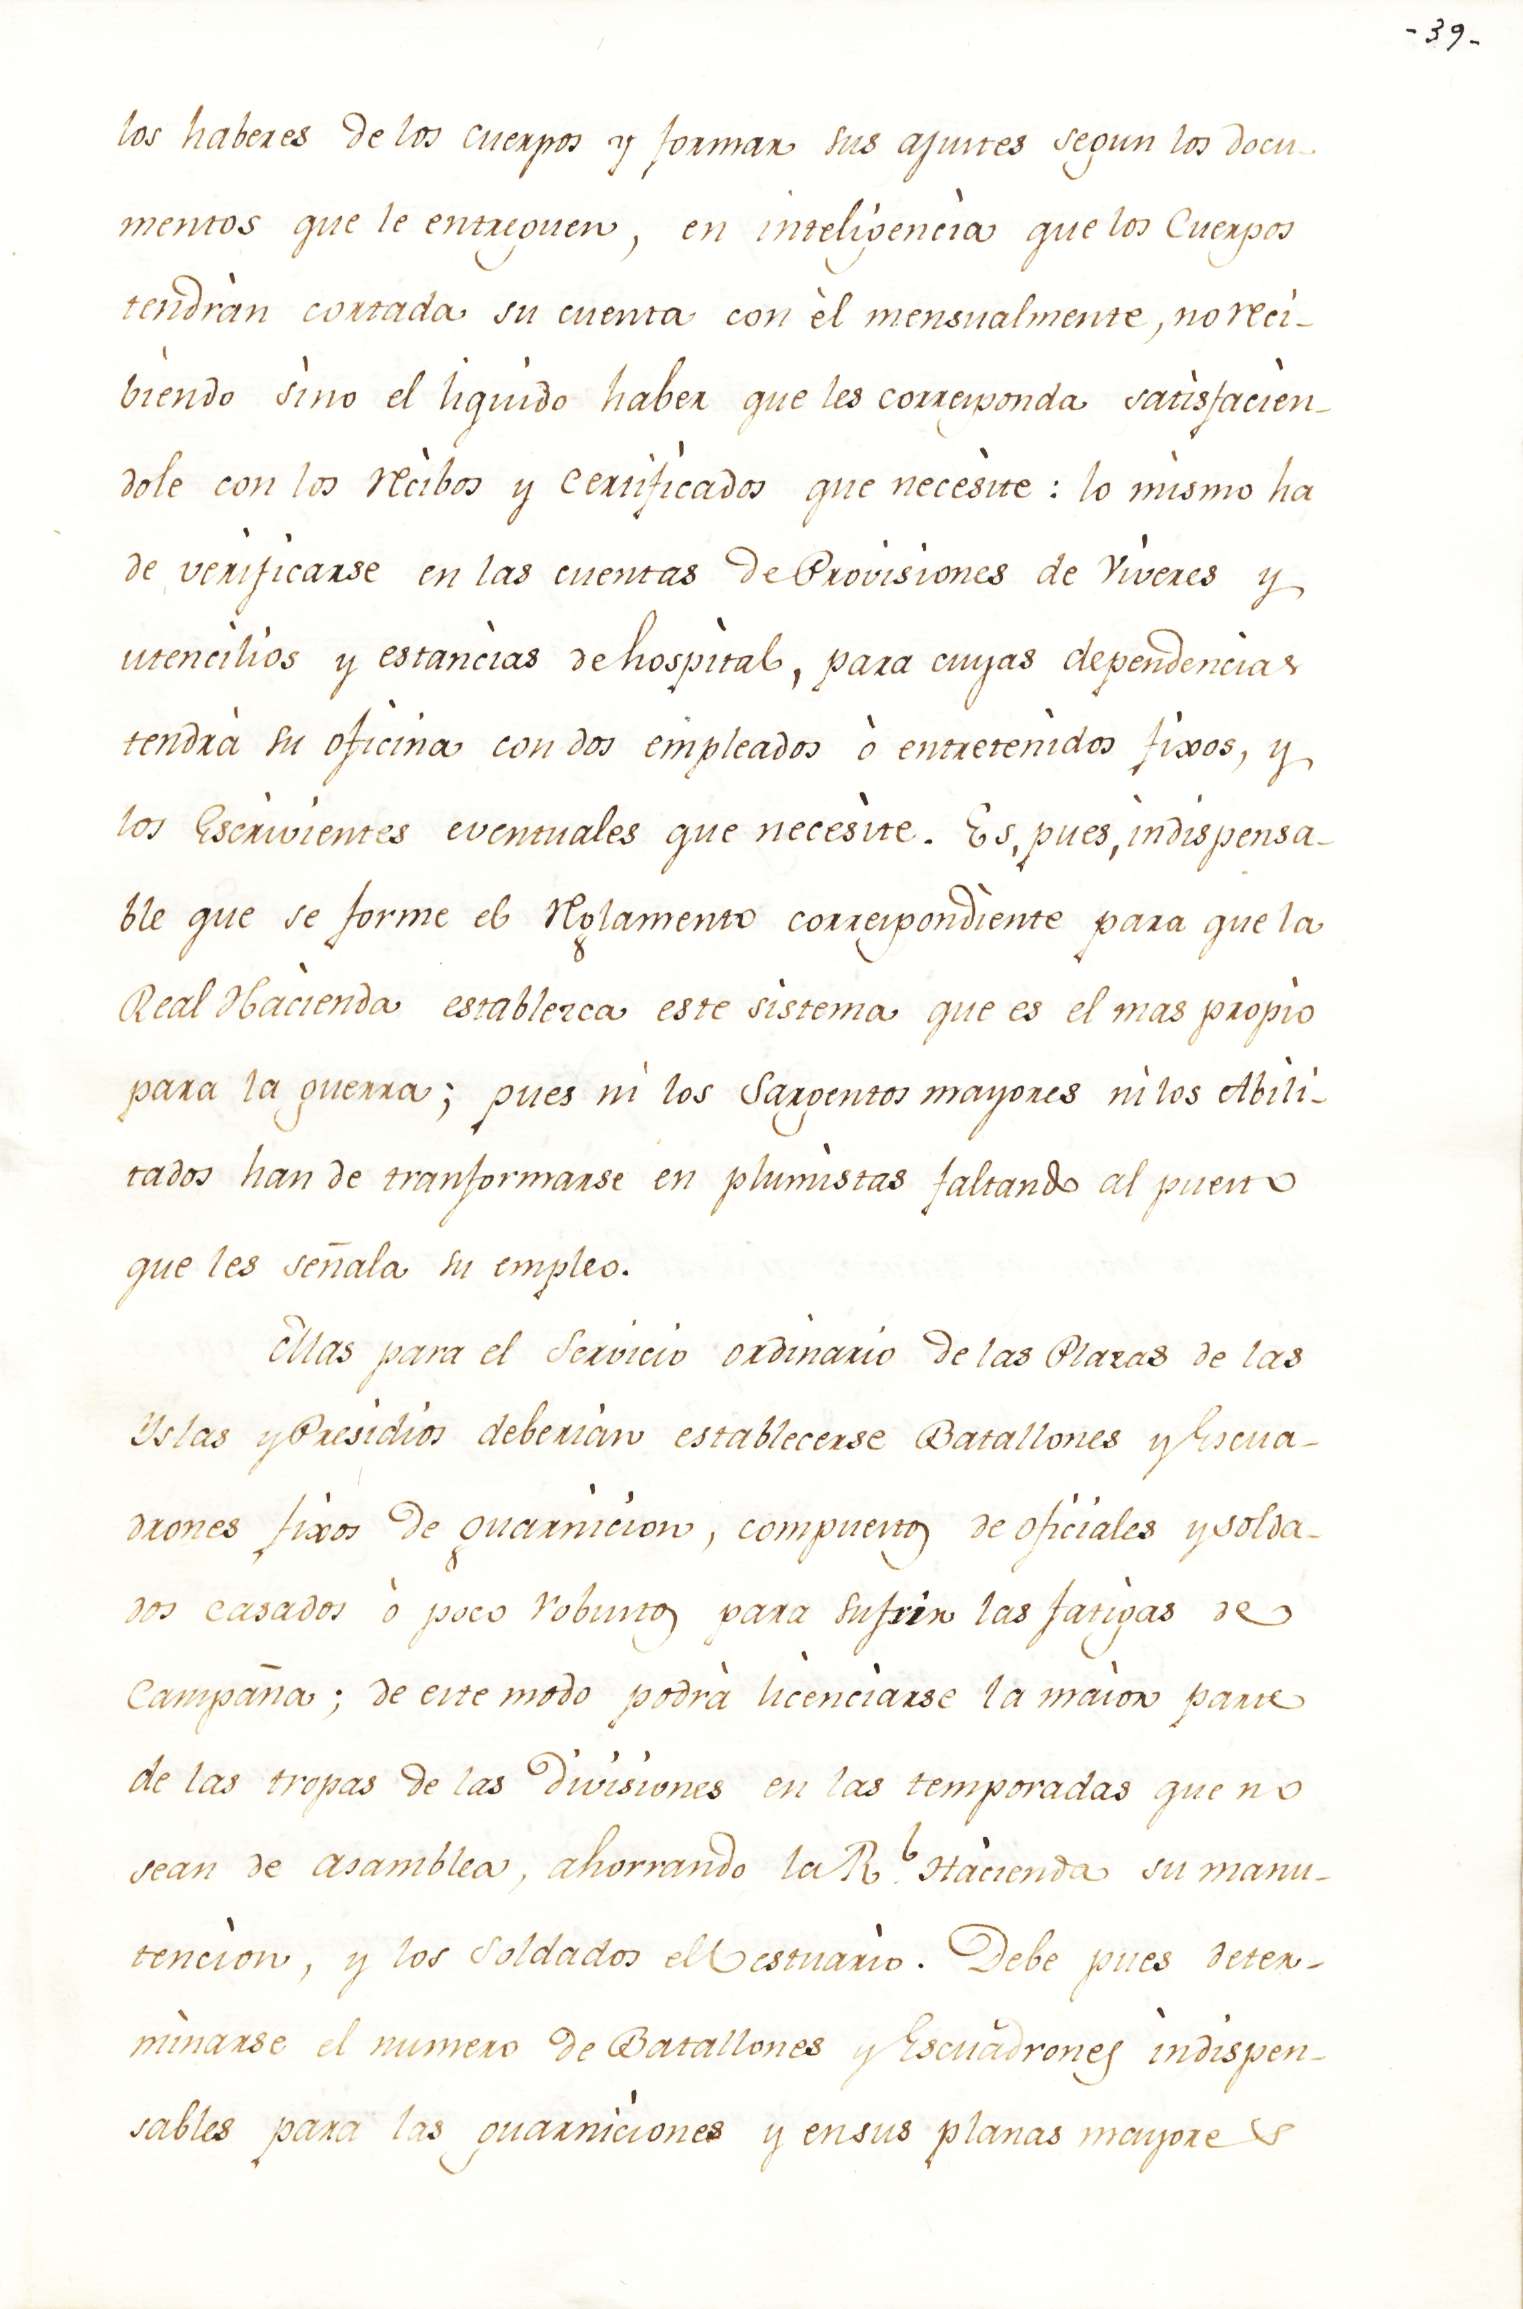 -39-
los haberes de los cuerpos y formar sus ajustes segun los docu-
mentos que le entreguen, en inteligencia que los Cuerpos
tendràn cortada su cuenta con èl mensualmente, no reci-
biendo sino el liquido haber que les corresponda satisfacien-
dole con los recibos y certificados que necesite: lo mismo ha
de verificarse en las cuentas de Provisiones de Viveres y
utencilios y estancias de hospital, para cuyas dependencias
tendrà su oficina con dos empleados ò entretenidos fixos, y
los Escrivientes eventuales que necesite. Es, pues, indispensa-
ble que se forme el Reglamento correspondiente para que la
Real Hacienda establezca este sistema que es el mas propio
para la guerra; pues ni los Sargentos mayores ni los Abili-
tados han de tranformarse en plumistas faltando al puesto
que les señala su empleo.
Mas para el Servicio ordinario de las Plazas de las
Yslas y Presidios deberian establecerse Batallones y Escua-
drones fixos de guarnicion, compuestos de oficiales y solda-
dos casados ò poco robustos para sufrir las fatigas de
Campaña; de este modo podrà licenciarse la maior parte
de las tropas de las Divisiones en las temporadas que no
sean de asamblea, ahorrando la R.l Hacienda su manu-
tencion, y los Soldados el Vestuario. Debe pues deter-
minarse el numero de Batallones y Escuadrones indispen-
sables para las guarniciones y en sus planas mayores